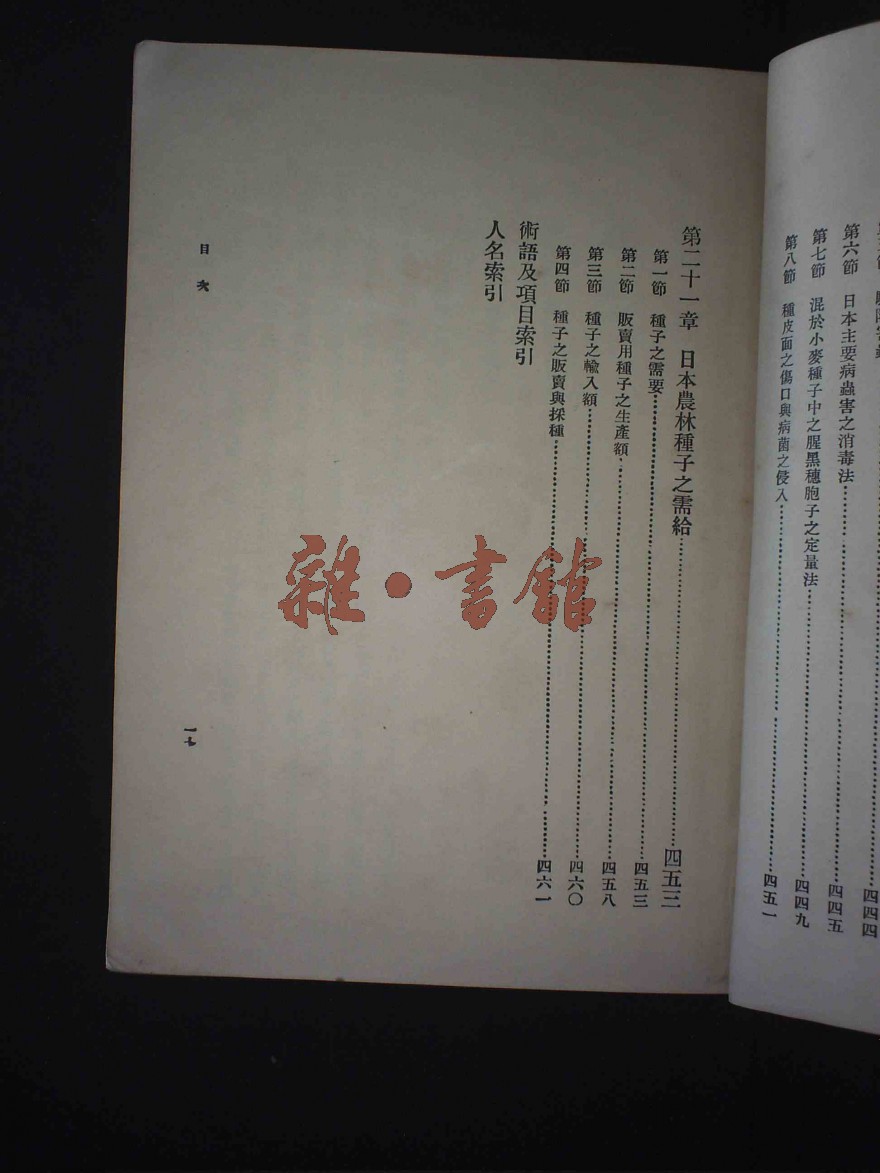 第六節　日本主要病蟲害之消毒法……四四五
第七節　混於小麥種子中之腥黑穗胞子之定量法……四四九
第八節　種皮面之傷口與病菌之侵入……四五一
第二十一章　日本農林種子之需給……四五三
第一節　種子之需要……四五三
第二節　販賣用種子之生產額……四五八
第三節　種子之輸入額……四六〇
第四節　種子之販賣與採種……四六一
術語及項目索引
人名索引
目次
一七
雜·書館